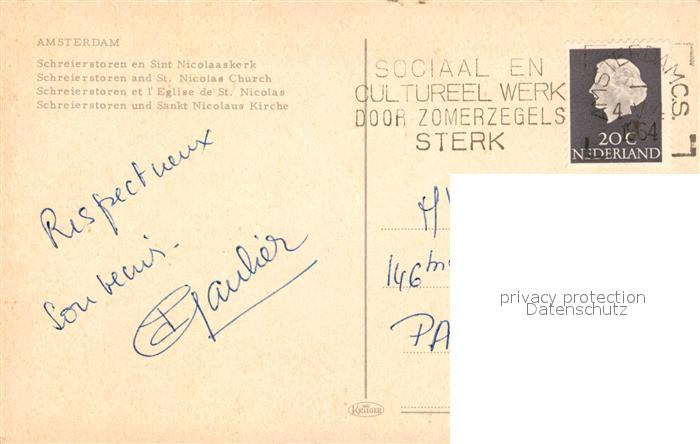 AMSTERDAM
Schreierstoren en Sint Nicolaaskerk
Schreierstoren and St. Nicolas Church
Schreierstoren et l' Eglise de St. Nicolas
Schreierstoren und Sankt Nicolaus Kirche
SOCIAAL EN
CULTUREEL WERK
DOOR ZOMERZEGELS
STERK
AMSTERDAM C.S.
1964
20 C
NEDERLAND
Respectueux
souvenir.
Gautier
146 bis
PA
privacy protection
Datenschutz
KRÜGER